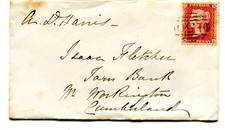 A. D. Harris.
Isaac Fletcher
Tarn Bank
Nr. Workington
Cumberland